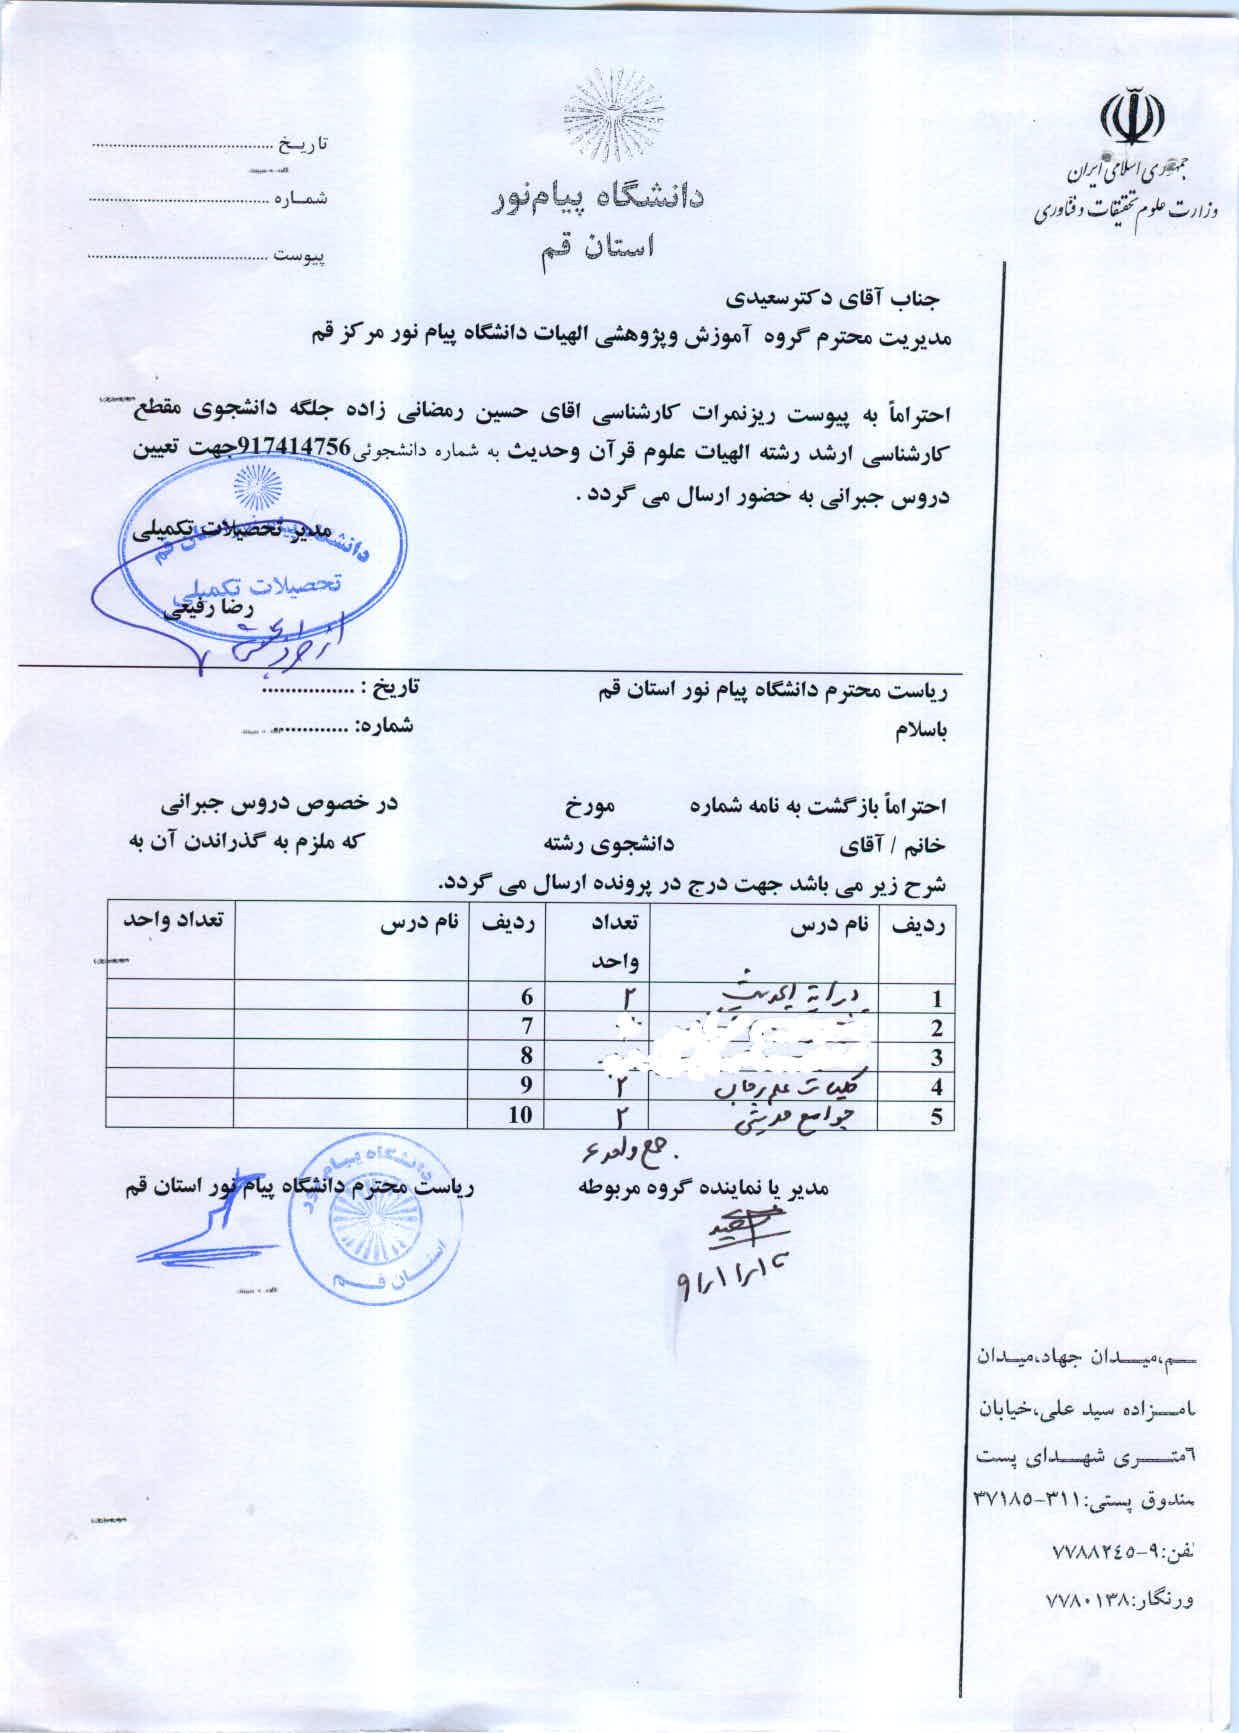 جمهوری اسلامی ایران
وزارت علوم تحقیقات و فناوری
دانشگاه پیام‌نور
استان قم
تاریـخ ........................................
شمـاره ........................................
پیوست ........................................
جناب آقای دکترسعیدی
مدیریت محترم گروه آموزش وپژوهشی الهیات دانشگاه پیام نور مرکز قم
احتراماً به پیوست ریزنمرات کارشناسی اقای حسین رمضانی زاده جلگه دانشجوی مقطع
کارشناسی ارشد رشته الهیات علوم قرآن وحدیث به شماره دانشجوئی917414756جهت تعیین
دروس جبرانی به حضور ارسال می گردد .
مدیر تحصیلات تکمیلی
دانشگاه پیام نور استان قم
تحصیلات تکمیلی
رضا رفیعی
ریاست محترم دانشگاه پیام نور استان قم تاریخ : ................
باسلام شماره: .............
احتراماً بازگشت به نامه شماره مورخ در خصوص دروس جبرانی
خانم / آقای دانشجوی رشته که ملزم به گذراندن آن به
شرح زیر می باشد جهت درج در پرونده ارسال می گردد.
ردیف نام درس تعداد واحد ردیف نام درس تعداد واحد
1 درایة الحدیث ۲ 6
2 7
3 8
4 کلیات علم رجال ۲ 9
5 جوامع حدیثی ۲ 10
جمع واحد ۶
مدیر یا نماینده گروه مربوطه ریاست محترم دانشگاه پیام نور استان قم
دانشگاه پیام نور
استان قم
ـم،میـدان جهاد،میـدان
امـزاده سید علی،خیابان
٦متـری شهـدای پست
ندوق پستی:۳۱۱-۳۷۱۸۵
لفن:۹-۷۷۸۸۲٤٥
ورنگار:۷۷۸۰۱۳۸